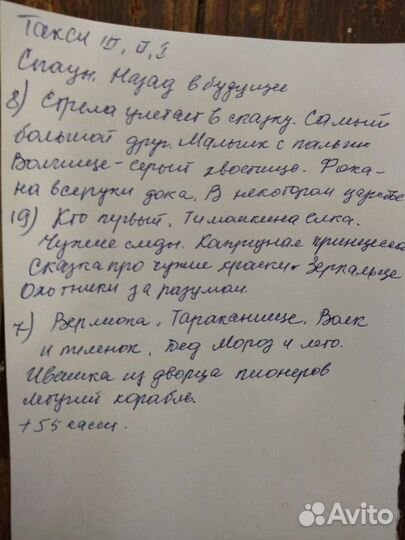 Такси III, II, I
Спаун. Назад в будущее
8) Стрела улетает в сказку. Самый
большой друг. Мальчик с пальчик
Волчище - серый хвостище. Фока-
на все руки дока. В некотором царстве
19) Кто первый. Тимошкина елка.
Чужие следы. Капризная принцесса
Сказка про чужие краски. Зеркальце
Охотники за разумом
7) Верлиока. Тараканище. Волк
и теленок. Дед Мороз и лето.
Ивашка из дворца пионеров
Летучий корабль.
+55 кассет.
Avito